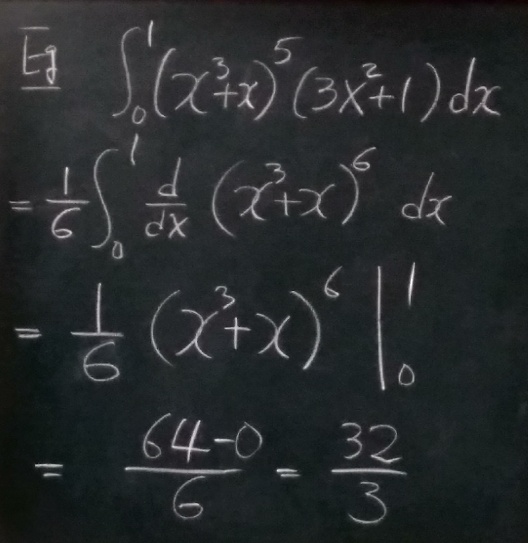 Eg ∫₀¹ (x³+x)⁵ (3x²+1) dx
= 1/6 ∫₀¹ d/dx (x³+x)⁶ dx
= 1/6 (x³+x)⁶ |₀¹
= (64-0)/6 = 32/3